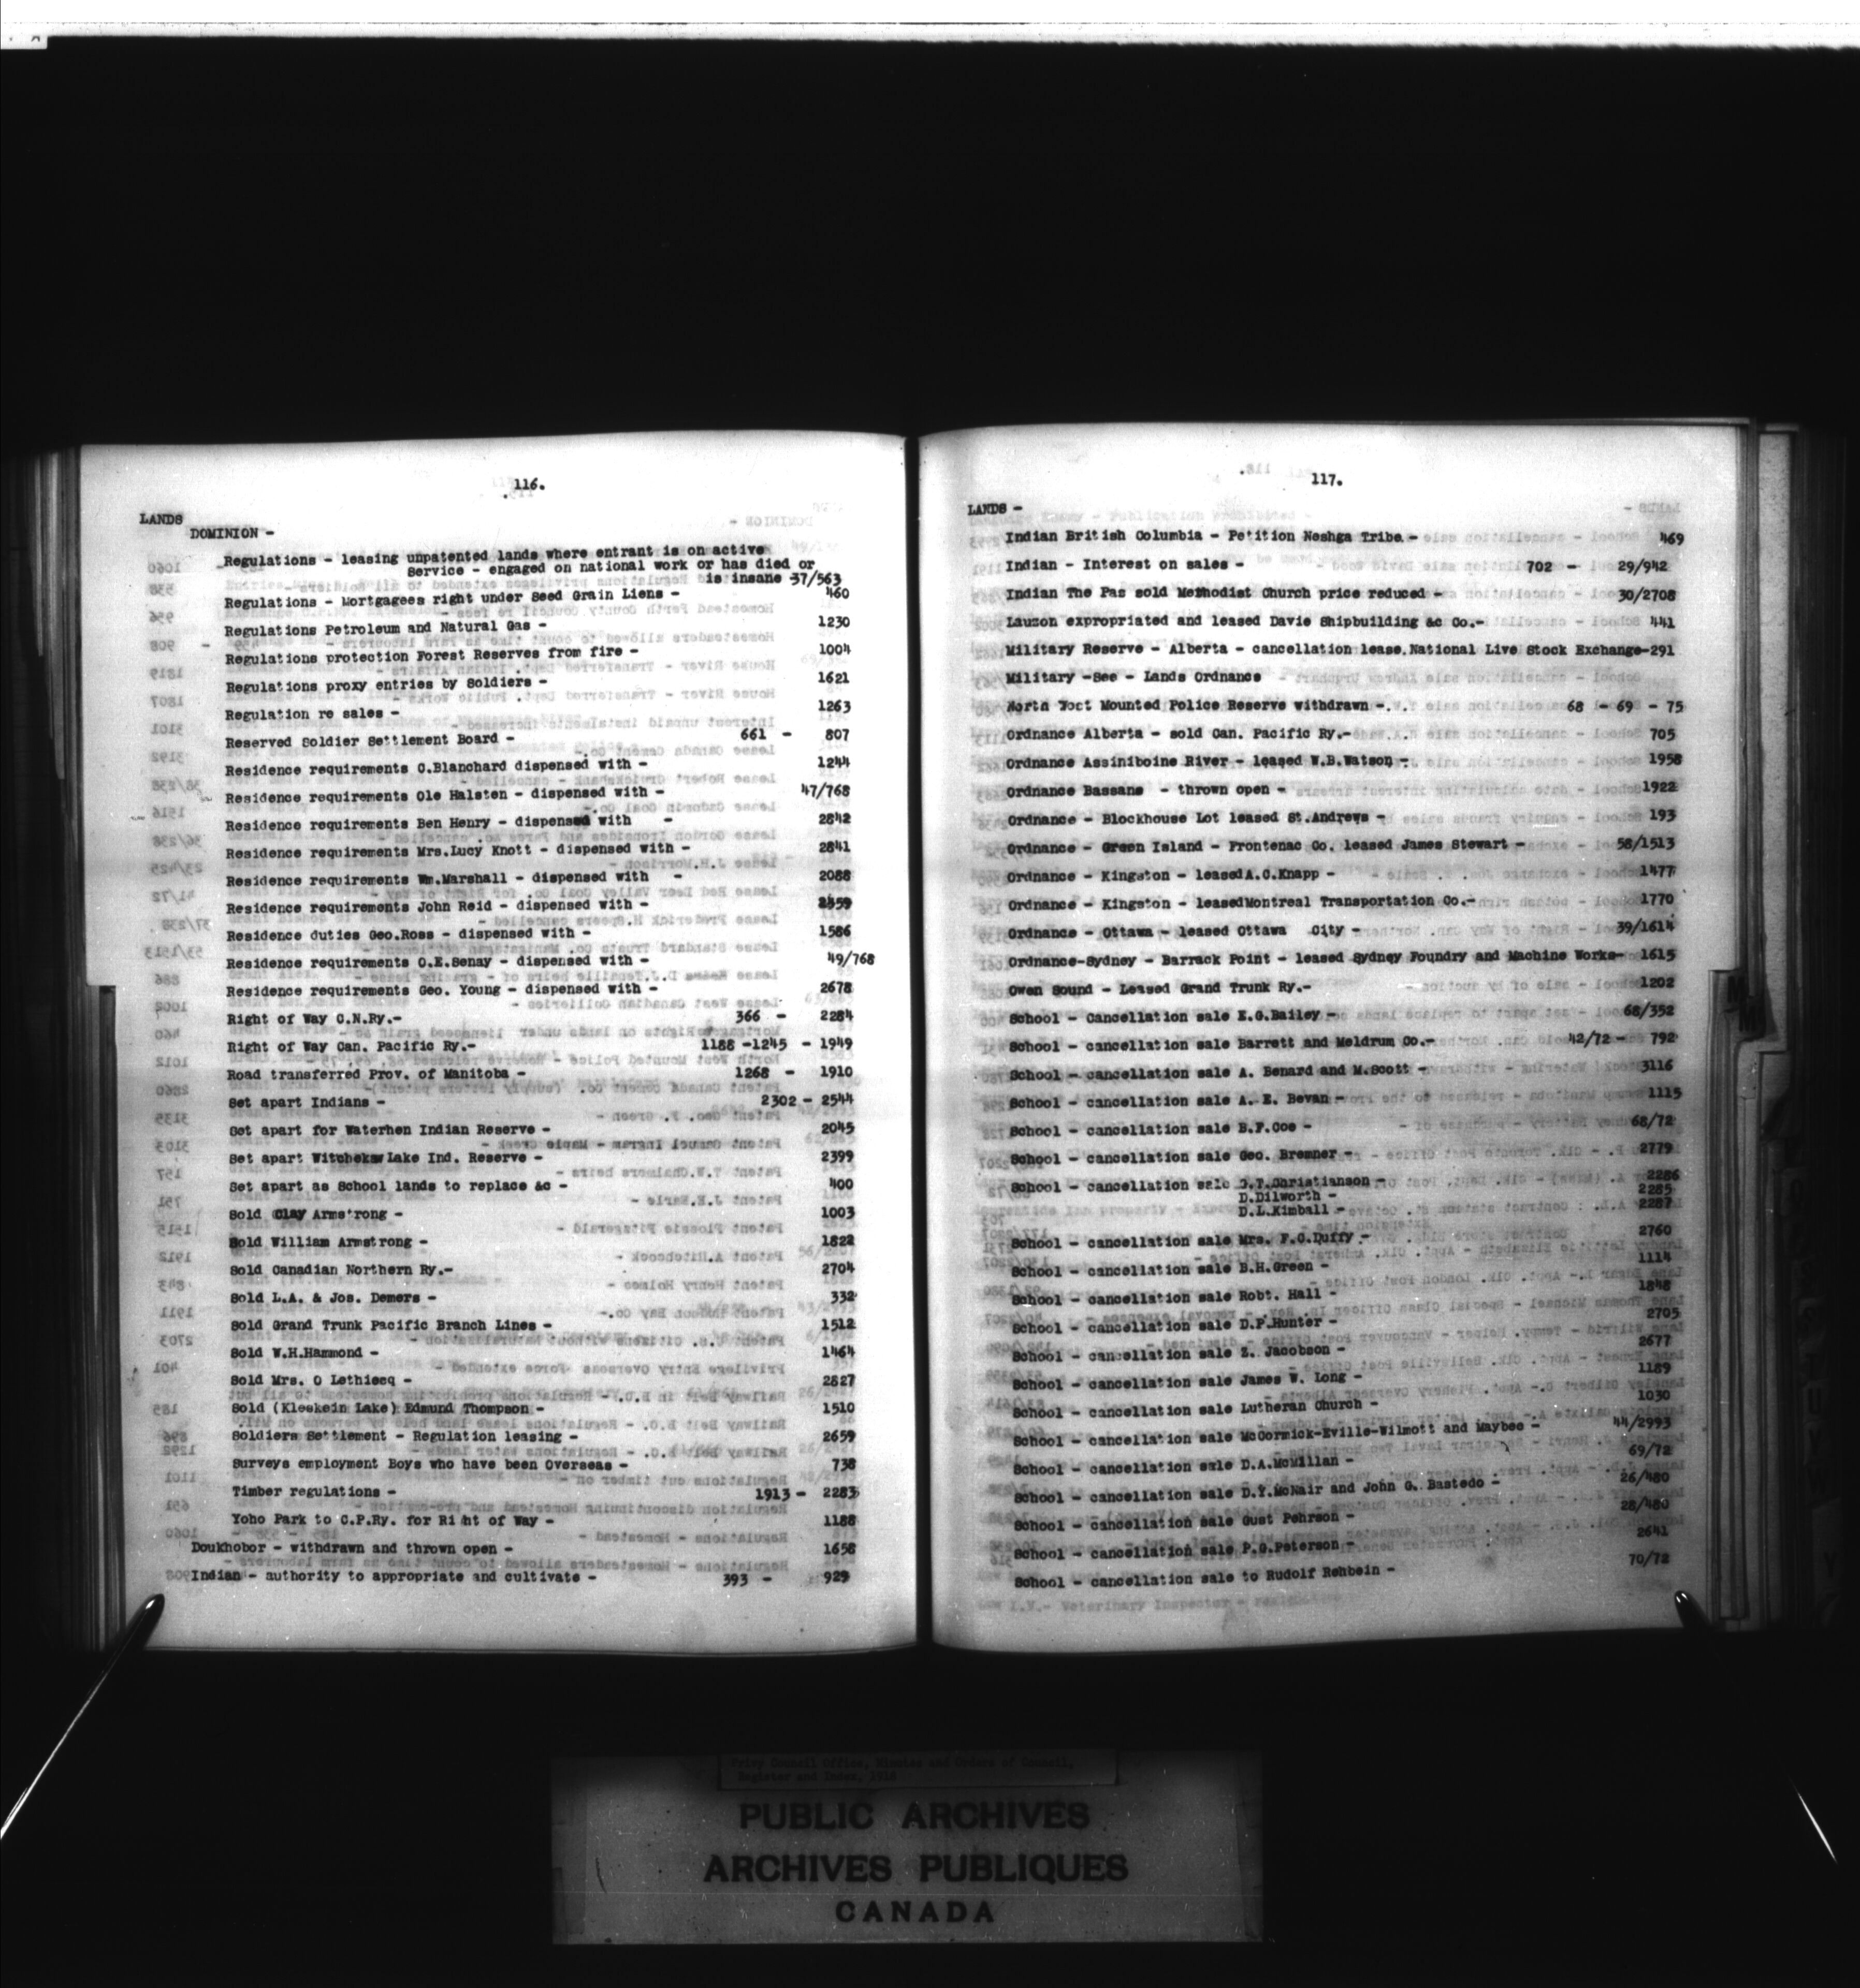 116.
LANDS
DOMINION -
Regulations - leasing unpatented lands where entrant is on active
Service - engaged on national work or has died or
is insane 37/563
Regulations - Mortgagees right under Seed Grain Liens - 460
Regulations Petroleum and Natural Gas - 1230
Regulations protection Forest Reserves from fire - 1004
Regulations proxy entries by Soldiers - 1621
Regulation re sales - 1263
Reserved Soldier Settlement Board - 661 - 807
Residence requirements C.Blanchard dispensed with - 1244
Residence requirements Ole Halsten - dispensed with - 47/768
Residence requirements Ben Henry - dispensed with - 2842
Residence requirements Mrs.Lucy Knott - dispensed with - 2841
Residence requirements Wm.Marshall - dispensed with - 2088
Residence requirements John Reid - dispensed with -
Residence duties Geo.Ross - dispensed with - 1586
Residence requirements C.E.Senay - dispensed with - 49/768
Residence requirements Geo. Young - dispensed with - 2678
Right of Way C.N.Ry.- 366 - 2284
Right of Way Can. Pacific Ry.- 1188 -1245 - 1949
Road transferred Prov. of Manitoba - 1268 - 1910
Set apart Indians - 2302 - 2544
Set apart for Waterhen Indian Reserve - 2045
Set apart Witchekaw Lake Ind. Reserve - 2399
Set apart as School lands to replace &c - 400
Sold Clay Armstrong - 1003
Sold William Armstrong - 1822
Sold Canadian Northern Ry.- 2704
Sold L.A. & Jos. Demers - 332
Sold Grand Trunk Pacific Branch Lines - 1512
Sold W.H.Hammond - 1464
Sold Mrs. O Lethiecq - 2827
Sold (Kleskein Lake) Edmund Thompson - 1510
Soldiers Settlement - Regulation leasing - 2659
Surveys employment Boys who have been Overseas - 738
Timber regulations - 1913 - 2283
Yoho Park to C.P.Ry. for Ri ht of Way - 1188
Doukhobor - withdrawn and thrown open - 1658
Indian - authority to appropriate and cultivate - 393 - 929
117.
LANDS -
Indian British Columbia - Petition Neshga Tribe - 469
Indian - Interest on sales - 702 - 29/942
Indian The Pas sold Methodist Church price reduced - 30/2708
Lauzon expropriated and leased Davie Shipbuilding &c Co.- 441
Military Reserve - Alberta - cancellation lease.National Live Stock Exchange-291
Military -See - Lands Ordnance
North West Mounted Police Reserve withdrawn - 68 - 69 - 75
Ordnance Alberta - sold Can. Pacific Ry.- 705
Ordnance Assiniboine River - leased W.B.Watson - 1958
Ordnance Bassano - thrown open - 1922
Ordnance - Blockhouse Lot leased St.Andrews - 193
Ordnance - Green Island - Frontenac Co. leased James Stewart - 58/1513
Ordnance - Kingston - leasedA.C.Knapp - 1477
Ordnance - Kingston - leasedMontreal Transportation Co.- 1770
Ordnance - Ottawa - leased Ottawa City - 39/1614
Ordnance-Sydney - Barrack Point - leased Sydney Foundry and Machine Works- 1615
Owen Sound - Leased Grand Trunk Ry.- 1202
School - Cancellation sale E.G.Bailey - 68/352
School - cancellation sale Barrett and Meldrum Co.- 42/72 - 792
School - cancellation sale A. Benard and M.Scott - 3116
School - cancellation sale A. E. Bevan - 1115
School - cancellation sale B.F.Coe - 68/72
School - cancellation sale Geo. Bremner - 2779
School - cancellation sale O.T.Christianson - 2286
D.Dilworth - 2285
D.L.Kimball - 2287
School - cancellation sale Mrs. F.C.Duffy - 2760
School - cancellation sale B.H.Green - 1114
School - cancellation sale Robt. Hall - 1848
School - cancellation sale D.F.Hunter - 2705
School - cancellation sale Z. Jacobson - 2677
School - cancellation sale James W. Long - 1189
School - cancellation sale Lutheran Church - 1030
School - cancellation sale McCormick-Eville-Wilmott and Maybee - 44/2993
School - cancellation sale D.A.McMillan - 69/72
School - cancellation sale D.Y.McNair and John G. Bastedo - 26/480
School - cancellation sale Gust Pehrson - 28/480
School - cancellation sale P.G.Peterson - 2641
School - cancellation sale to Rudolf Rehbein - 70/72
Privy Council Office, Minutes and Orders of Council,
Register and Index, 1918
PUBLIC ARCHIVES
ARCHIVES PUBLIQUES
CANADA